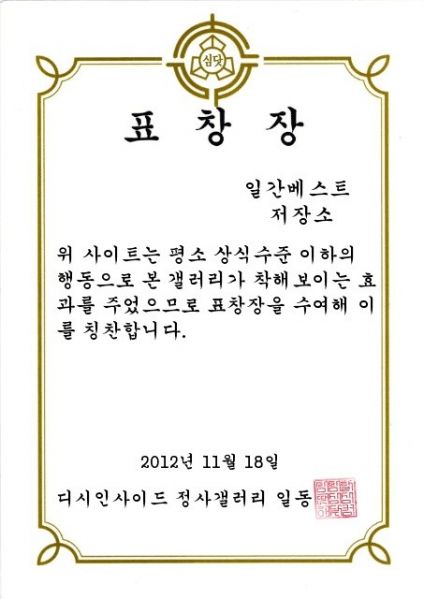 심닷
표 창 장
일간베스트
저장소
위 사이트는 평소 상식수준 이하의
행동으로 본 갤러리가 착해보이는 효
과를 주었으므로 표창장을 수여해 이
를 칭찬합니다.
2012년 11월 18일
디시인사이드 정사갤러리 일동